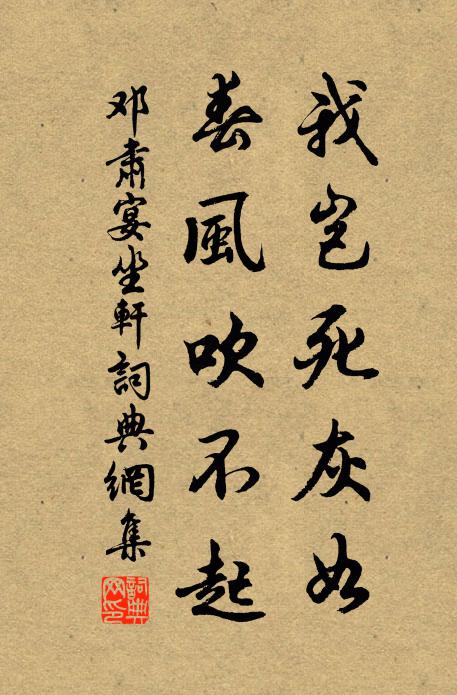 我岂死灰如
春風吹不起
邓肅宴坐軒詞典網集
詞典网印